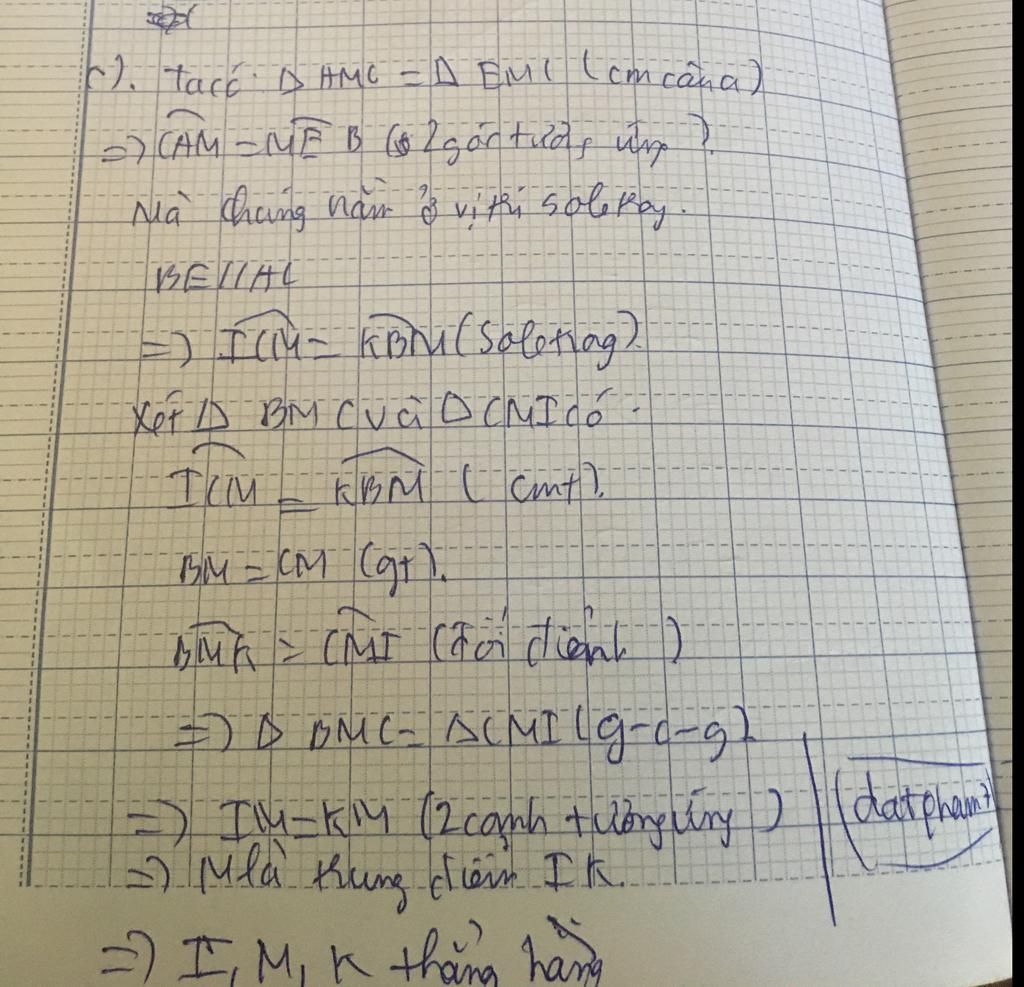 c). ta có: Δ AMC = Δ EMC (cm câu a)
=> CAM = MEB (2 góc tương ứng).
Mà chúng nằm ở vị trí sole
BE//AC
=> ICM = KBM (Sole
Xét Δ BMC và Δ CMI có.
ICM = KBM ( cmt).
BM = CM (gt).
BMK = CMI (đối đỉnh )
=> Δ BMC = ΔCMI (g-c-g)
=> IM=KM (2 cạnh tương ứng )
(datpham
=> M là trung điểm IK.
=> I, M, K thẳng hàng